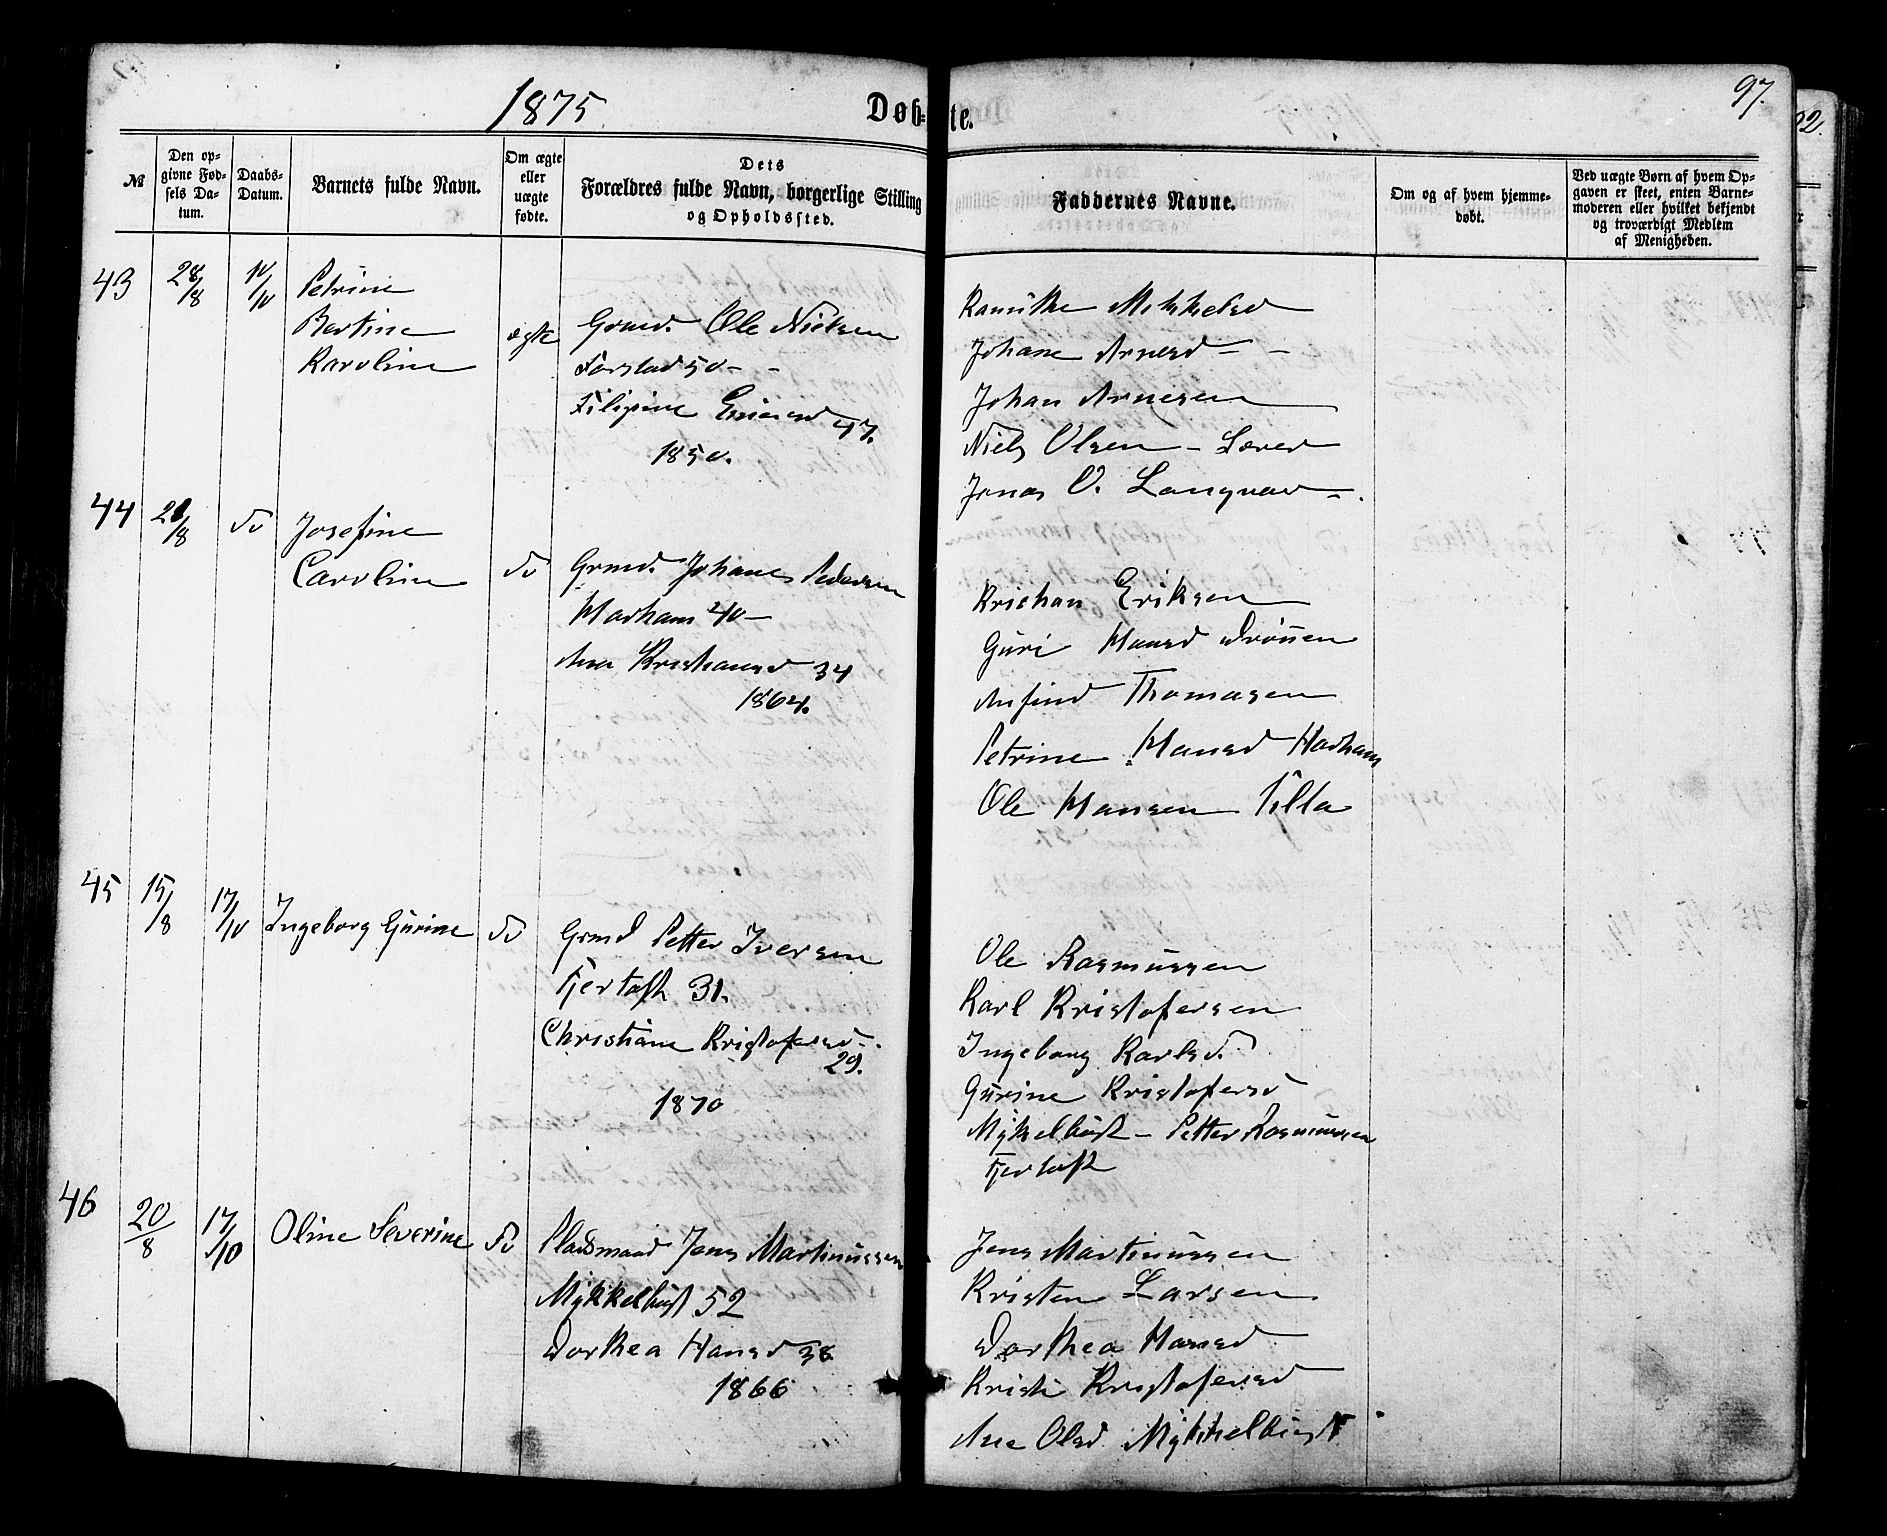 1875
Døb=
te.
97.
92.
№
Den op-
givne Fød-
sels Da-
tum.
Daabs-
Datum.
Barnets fulde Navn.
Om ægte
eller
uægte
fødte.
Dets
Forældres fulde Navn, borgerlige Stilling
og Opholdssted.
Faddernes Navne.
Om og af hvem hjemme-
døbt.
Ved uægte Børn af hvem Op-
gaven er skeet, enten Barne-
moderen eller hvilket bekjendt
og troværdigt Medlem
af Menigheden.
43
28/8
10/10
Petrine
Bertine
Karoline
ægte
Grmd. Ole Nielsen
Farstad 50 -
Filipine 47.
1850.
Mikkelsd
Johane Arnesd - -
Johan Arnesen
Niels Olsen -
Jonas O. Longvad -.
44
28/8
do
Josefine
Caroline
do
Grmd. Johanes Pedersen
Harham 40 -
Ane Kristiansd 34
1864.
Kristian Eriksen
Guri Hansd Drönen
Anfind Thomasen
Petrine Hansd Harham
Ole Hansen Ulla
45
15/8
17/10
Ingeborg Gurine
do
Grmd Petter Iversen
Fjertoft 31.
Christiane Kristofersd -.
29.
1870
Ole Rasmussen
Karl Kristofersen
Ingeborg Karlsd.
Gurine Kristofersd
Myklebust - Petter Rasmussen
Fjertoft
46
20/8
17/10
Oline Severine
do
Pladsmand Jens Martinussen
Mykkelbust 52
Dorthea Hansd 38
1866
Jens Martinussen
Kristen Larsen
Dorthea Hansd
Kristi Kristofersd
Ane Olsd Mykkelbust